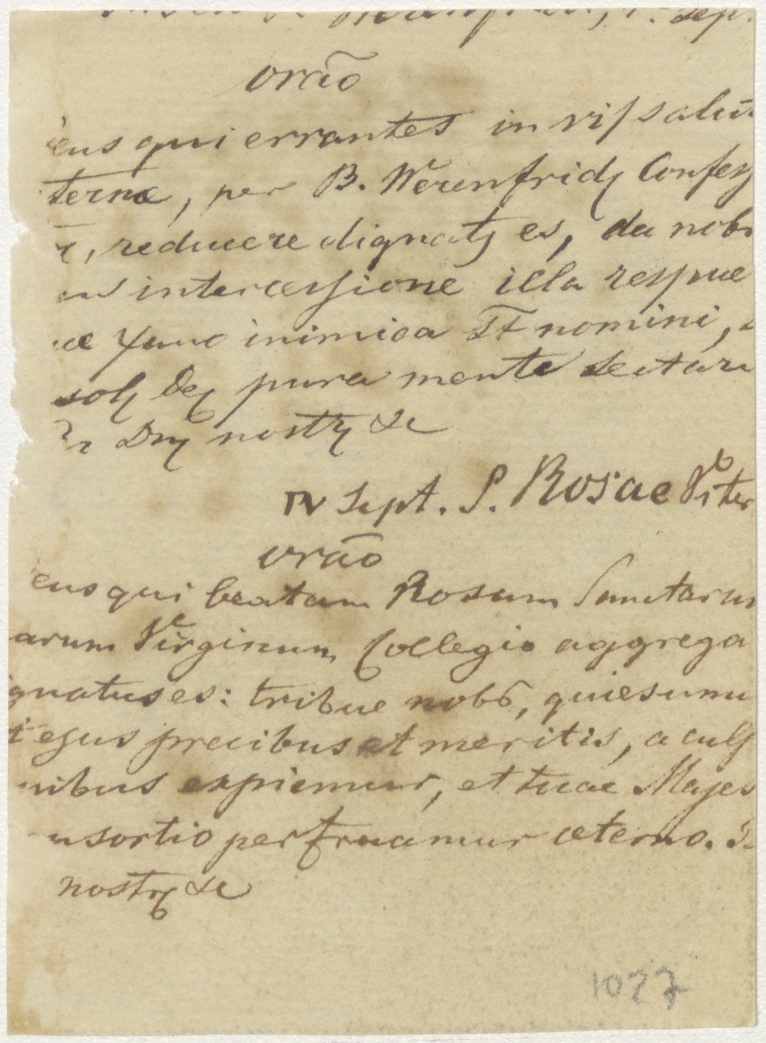 sept.
orāo
eus qui errantes in viſ salut
ternæ, per B. Werenfridj Confess
reducere dignatj es, da nobi
intercessione illa respue
inimica nomini,
solj Dej pura mente sectari
Dnj nostrj &c
IV Sept. S. Rosae Viter
orāo
eus qui beatam Rosam Sanctarum
arum Virginum Collegio aggrega
gnatus es: tribue nobs, quiesumu
t ejus precibus et meritis, a culp
nibus expiemur, et tuae Majes
nsortio perfruamur æterno.
nostrj &c
1027